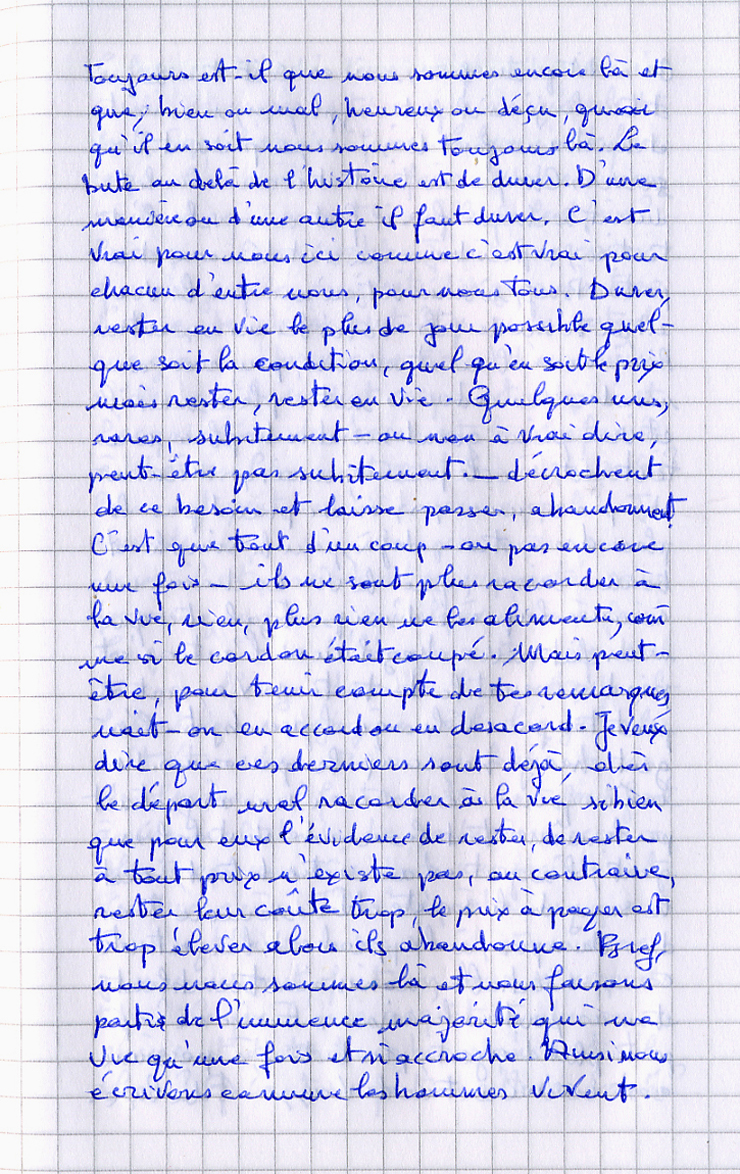 Toujours est-il que nous sommes encore là et
que, bien ou mal, heureux ou déçu, quoi
qu'il en soit nous sommes toujours là. Le
bute au delà de l'histoire est de durer. D'une
manière ou d'une autre il faut durer. C'est
vrai pour nous ici comme c'est vrai pour
chacun d'entre nous, pour nous tous. Durer,
rester en vie le plus de jour possible quel-
que soit la condition, quel qu'en soit le prix
mais rester, rester en vie. Quelques uns,
rares, subitement - ou non à vrai dire,
peut-être pas subitement. - décrochent
de ce besoin et laisse passer, abandonnent.
C'est que tout d'un coup - ou pas encore
une fois - ils ne sont plus racorder à
la vie, rien, plus rien ne les alimente, com
me si le cordon était coupé. Mais peut-
être, pour tenir compte de tes remarques,
nait-on en accord ou en desacord. Je veux
dire que ces derniers sont déjà, dès
le départ mal racorder à la vie si bien
que pour eux l'évidence de rester, de rester
à tout prix n'existe pas, au contraire,
rester leur coûte trop, le prix à payer est
trop élever alors ils abandonne. Bref,
nous nous sommes là et nous faisons
partie de l'immence majorité qui ne
vie qu'une fois et s'i accroche. Ainsi nous
écrivons comme les hommes vivent.